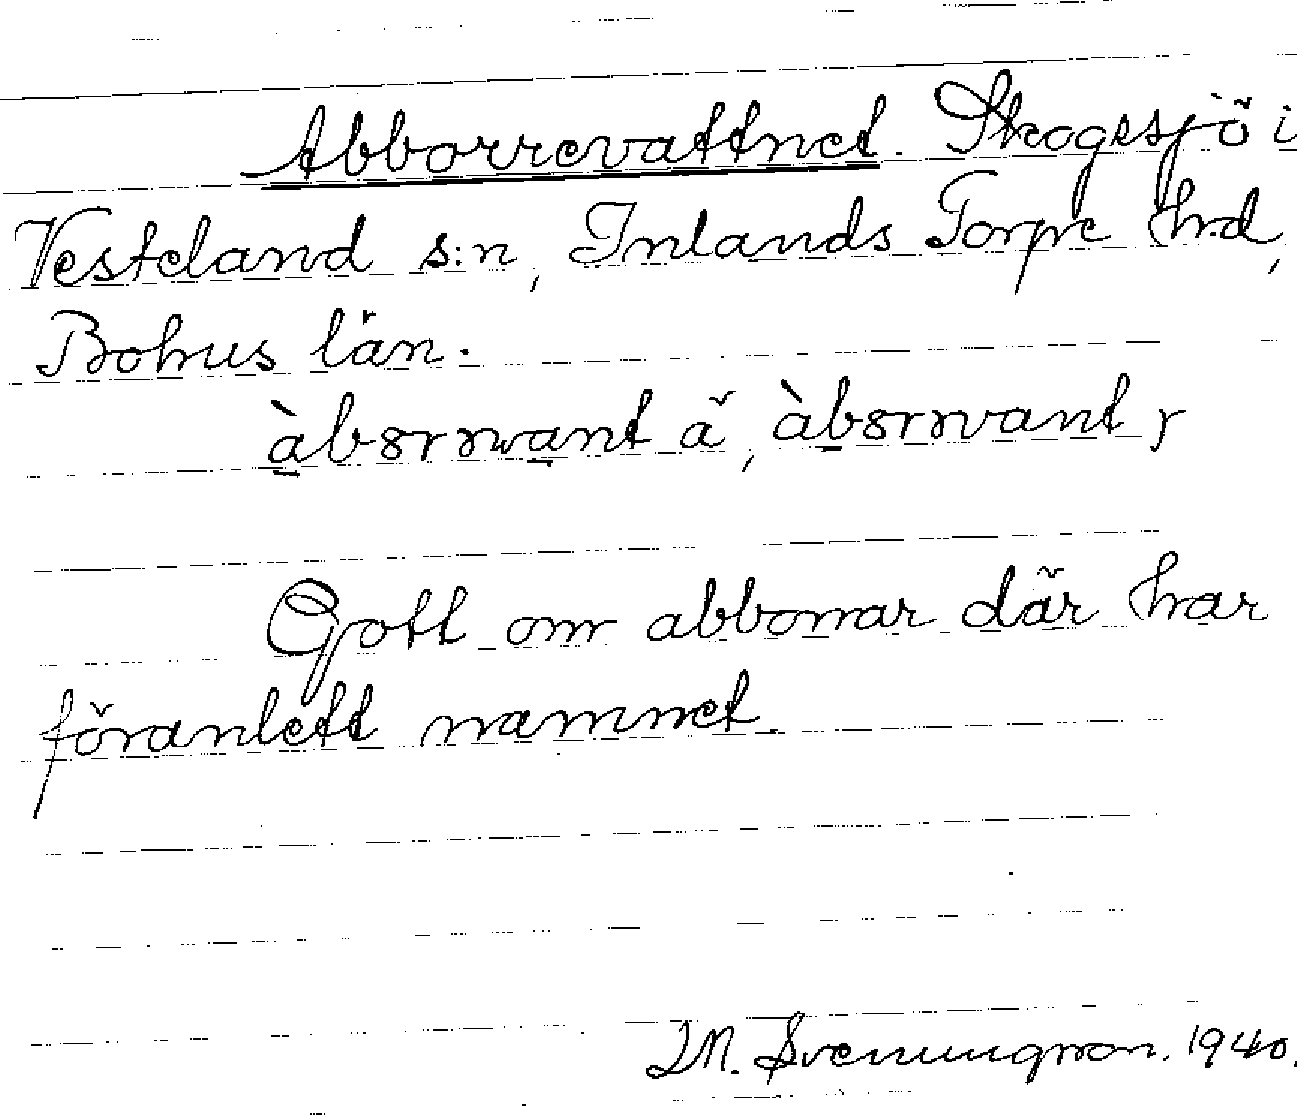 Abborrevattnet. Skogssjö i
Vesteland s:n, Inlands Torpe hd,
Bohus län.
Gott om abborrar där har
föranlett namnet.
M. Svenungsson. 1940.